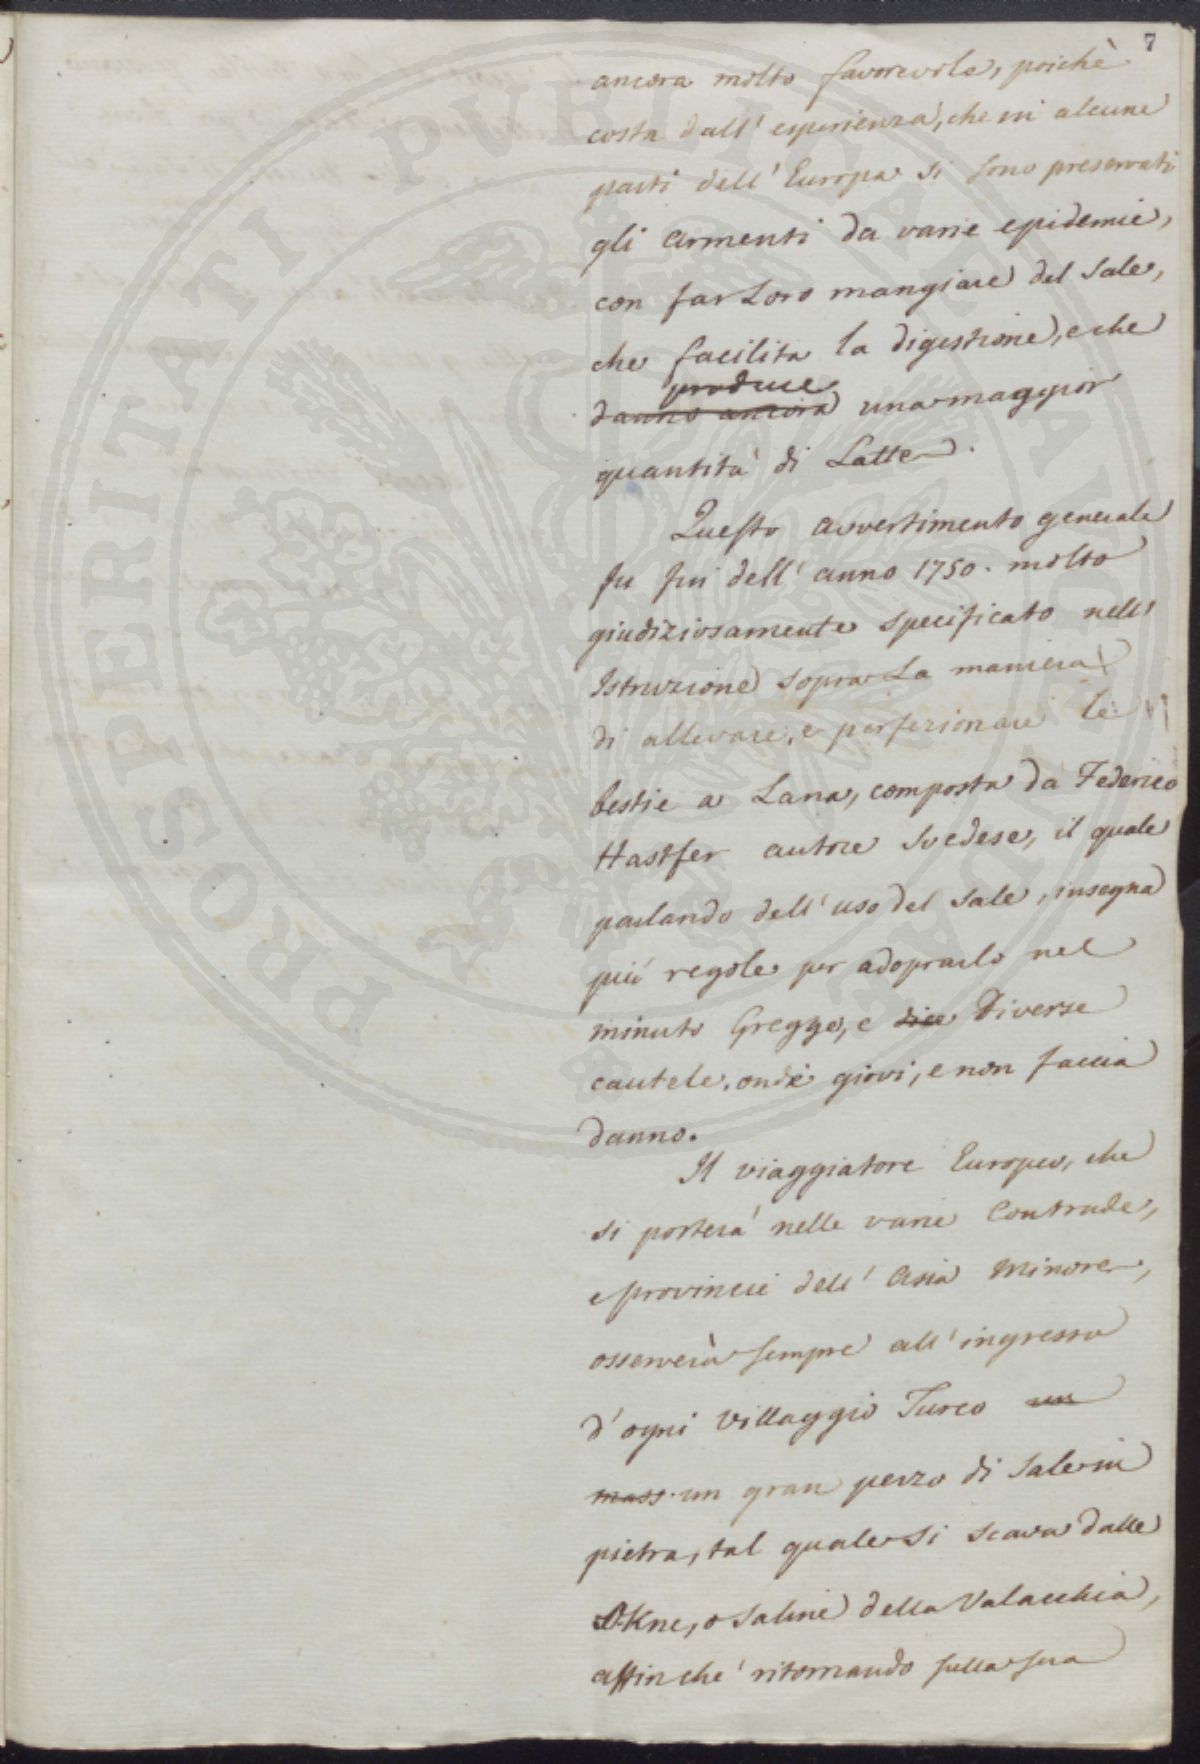 7
ancora molto favorevole, poichè
costa dall' esperienza, che in alcune
parti dell' Europa si sono preservati
gli armenti da varie epidemie,
con far Loro mangiare del Sale,
che facilita la digestione, e che
produce
danno ancora una maggior
quantità di Latte.
Questo avvertimento generale
fu fin dell' anno 1750. molto
giudiziosamente specificato nell'
Istruzione sopra La maniera
di allevare, e perfezionare le
bestie a Lana, composta da Federico
Hastfer autore Svedese, il quale
parlando dell' uso del Sale, insegna
più regole per adoprarlo nel
minuto Gregge, e dice Diverse
cautele, onde giovi, e non faccia
danno.
Il viaggiatore Europeo, che
si porterà nelle varie Contrade,
e provincie dell' Asia Minore,
osserverà sempre all' ingresso
d' ogni Villaggio Turco un
mass. un gran pezzo di Sale in
pietra, tal quale si scava dalle
Okne, o Saline della Valacchia,
affinchè ritornando sulla sera
PROSPERITATI PUBLICAE AUGENDAE